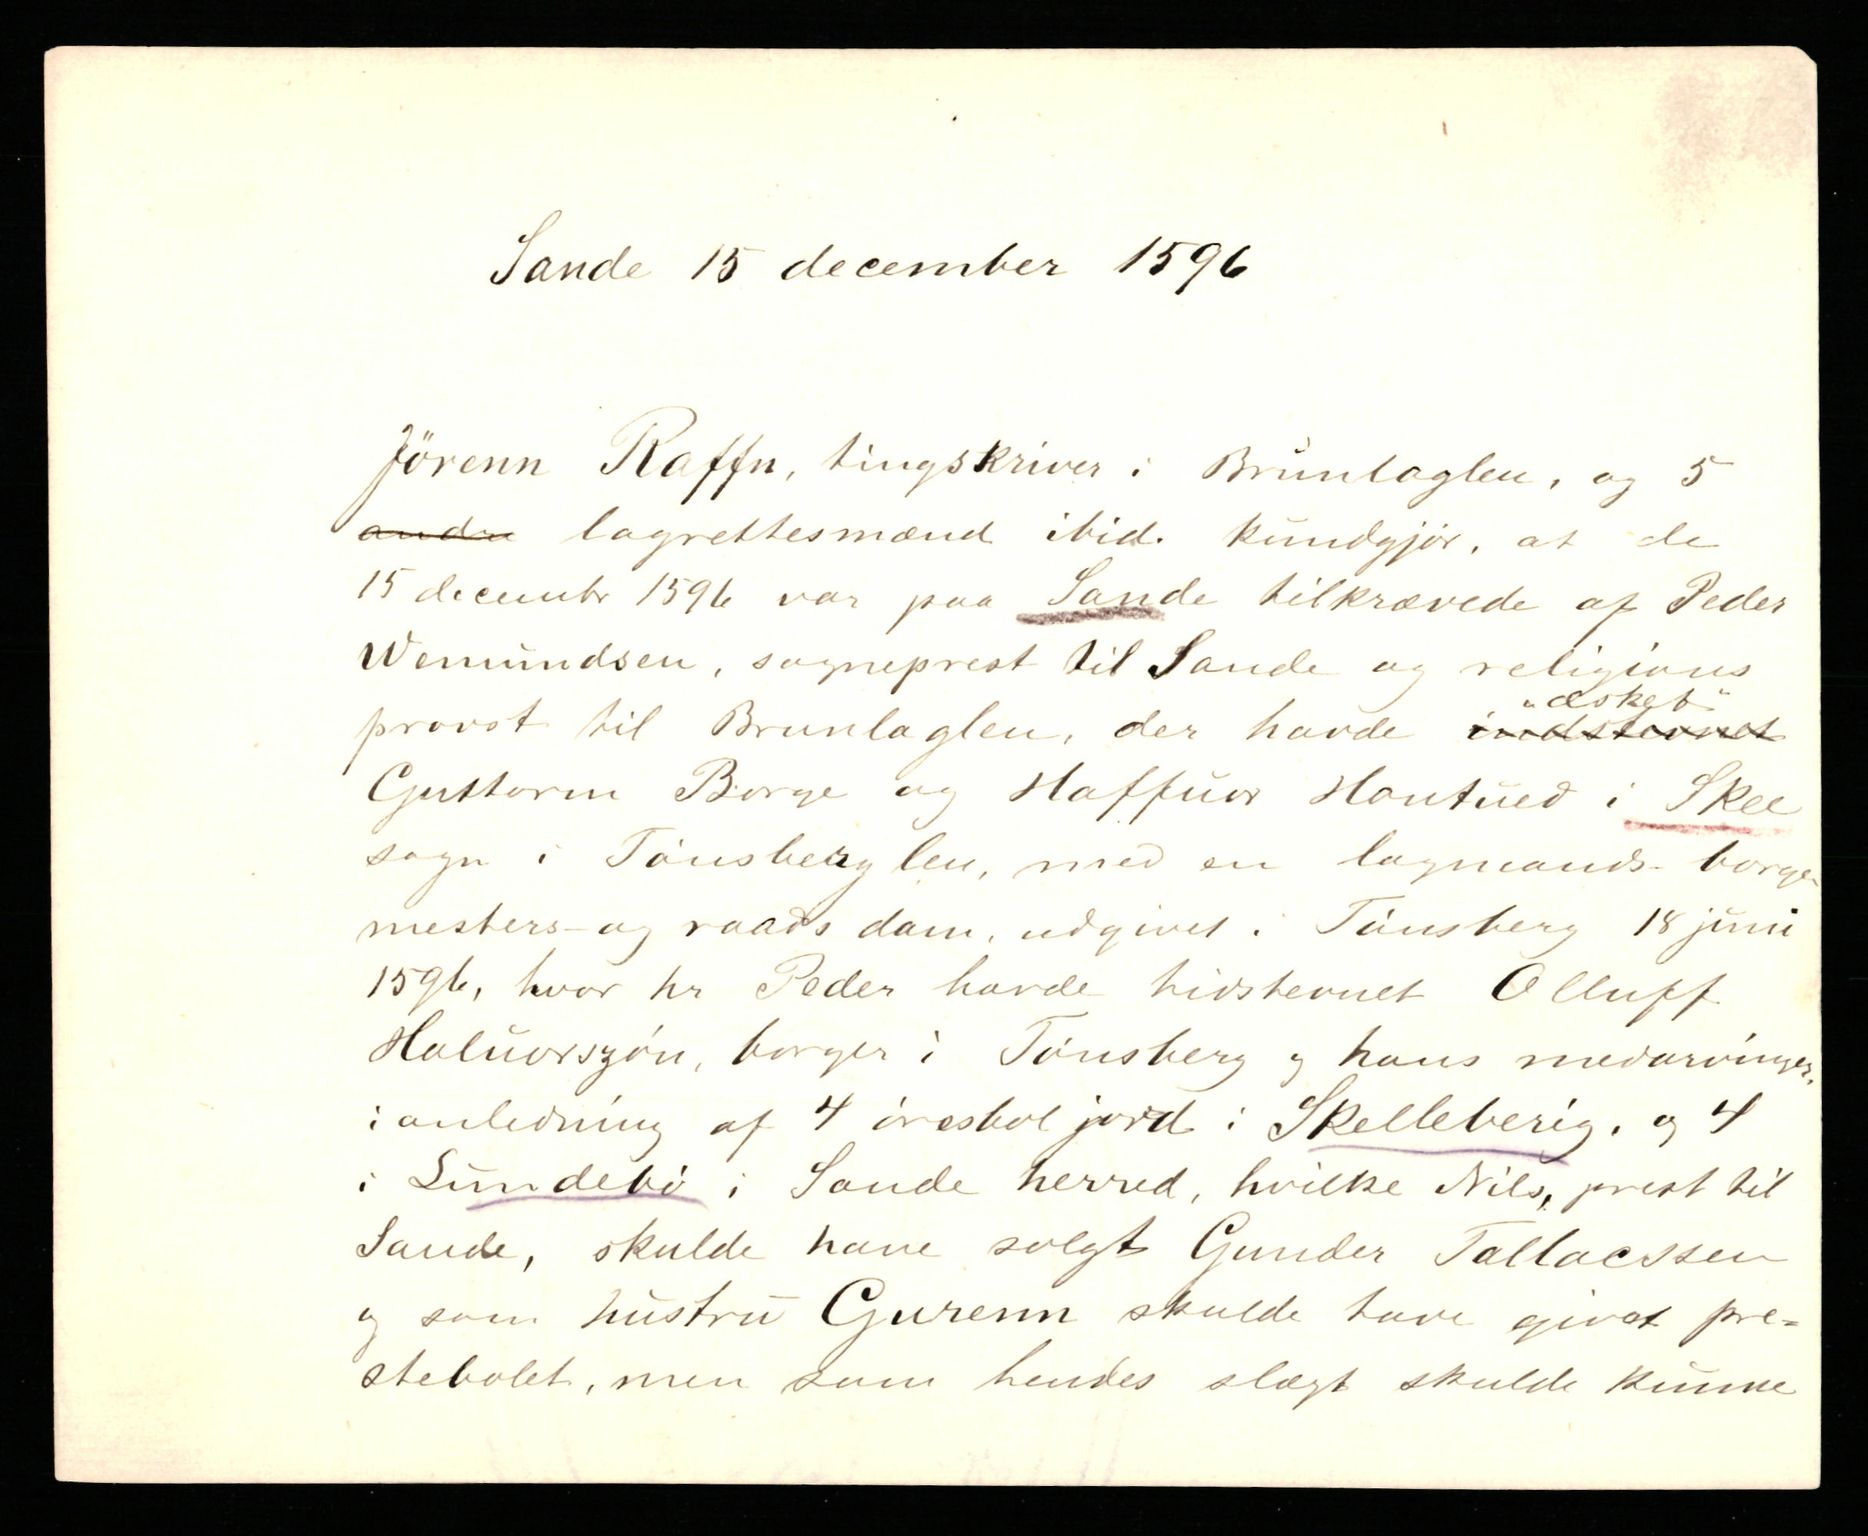 Sande 15 december 1596
Jörenn Raffn, tingskriver i Brunlaglen, og 5
andre lagrettesmænd ibid. kundgjör, at de
15 decembr 1596 var paa Sande tilkrævede af Peder
Wemundsen, sogneprest til Sande og religions
"æsket"
provst til Brunlaglen, der havde indstevnet
Guttorm Borge og Haffuor Hontued i Skee
sogn i Tönsberglen, med en lagmands- borge-
mesters- og raads dom, udgivet i Tönsberg 18 juni
1596, hvor hr Peder havde hidstevnet Olluff
Haluorszön, borger i Tönsberg og hans medarvinger,
i anledning af 4 öresbol jord i Skelleberig, og 4
i Lundebö i Sande herred, hvilke Nils, prest til
Sande, skulde have solgt Gunder Tallacssen
og som hustru Gurenn skulde have givet pre=
stebolet, men som hendes slægt skulde kunne